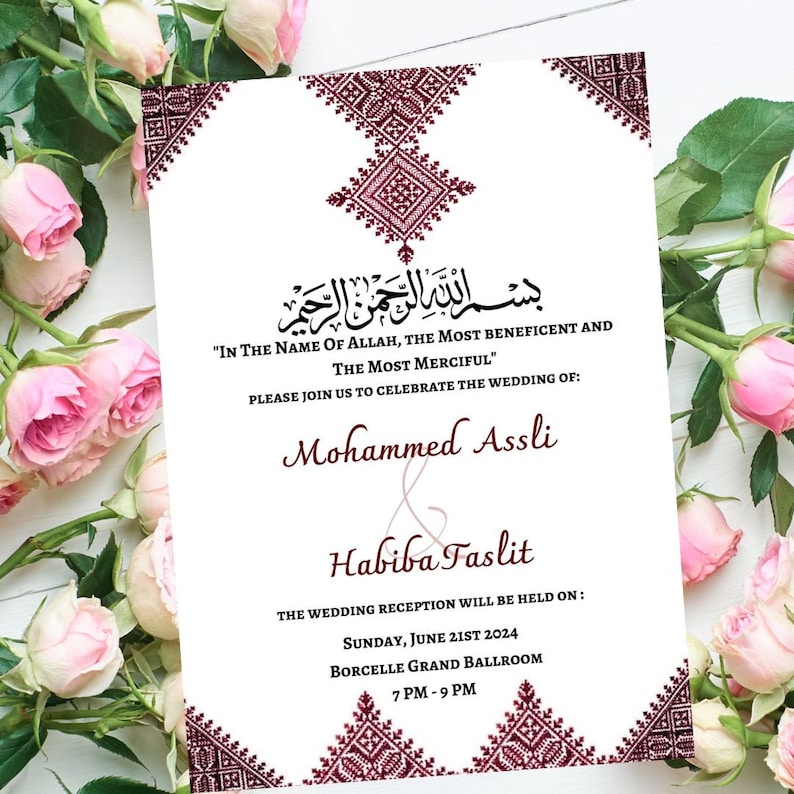 بسم الله الرحمن الرحيم
"In The Name Of Allah, the Most beneficent and
The Most Merciful"
please join us to celebrate the wedding of:
Mohammed Assli
&
Habiba Taslit
the wedding reception will be held on :
Sunday, June 21st 2024
Borcelle Grand Ballroom
7 PM - 9 PM